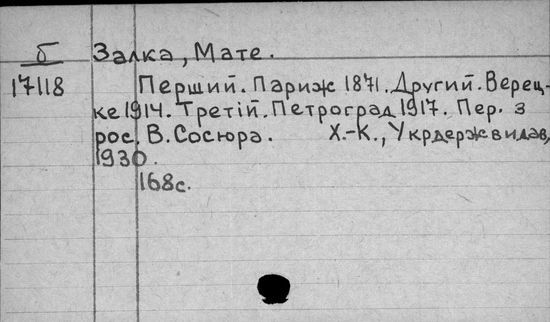 б Залка, Мате.
17118 Перший. Париж 1871. Другий. Верец-
ке 1914. Третій. Петроград 1917. Пер. з
рос. В. Сосюра. Х.-К., Укрдержвидав,
1930.
168с.